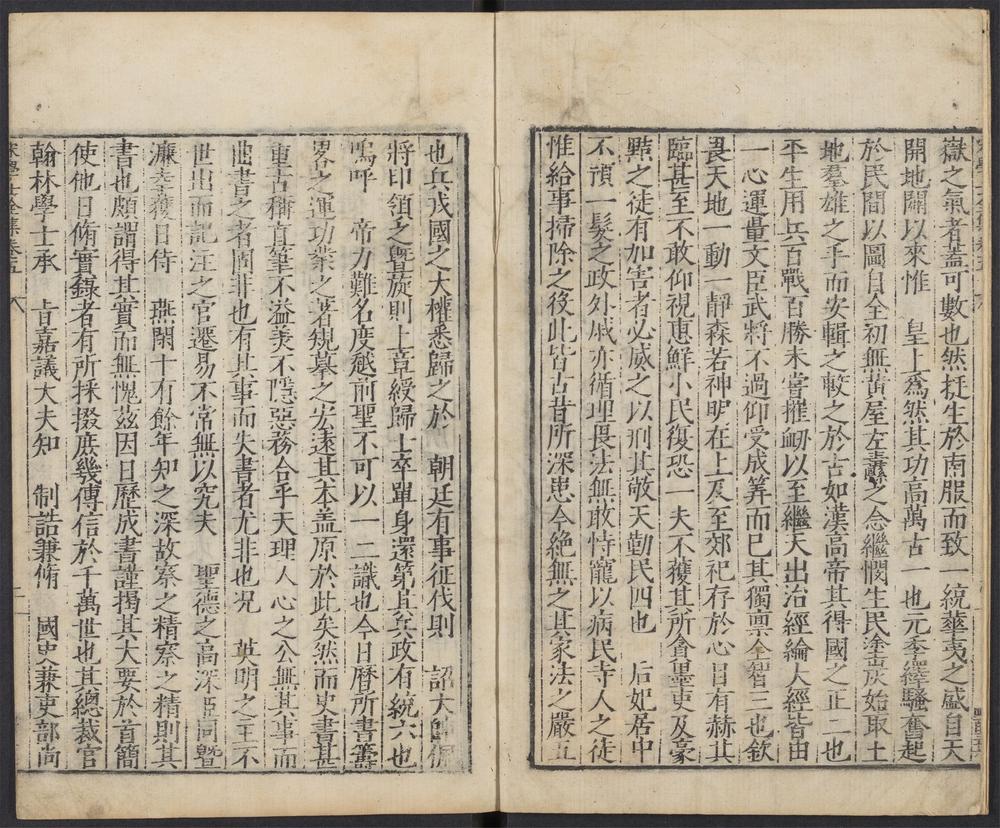 嶽之氣者蓋可數也然挺生於南服而致一統華夷之盛自天
開地闢以來惟 皇上爲然其功高萬古一也元季繹騷奮起
於民間以圖自全初無黃屋左纛之念繼憫生民塗炭始取土
地羣雄之手而安輯之較之於古如漢高帝其得國之正二也
平生用兵百戰百勝未嘗摧衂以至繼天出治經綸大經皆由
一心運量文臣武將不過仰受成筭而已其獨稟全智三也欽
畏天地一動一靜森若神明在上及至郊祀存於心目有赫其
臨甚至不敢仰視惠鮮小民復恐一夫不獲其所貪墨吏及豪
黠之徒有加害者必威之以刑其敬天勤民四也 后妃居中
不預一髮之政外戚亦循理畏法無敢恃寵以病民寺人之徒
惟給事掃除之役此皆古昔所深患今絶無之其家法之嚴五
也兵戎國之大權悉歸之於 朝廷有事征伐則 詔大帥佩
將印領之曁旋則上章綬歸士卒單身還第其兵政有統六也
嗚呼 帝力難名度越前聖不可以一二識也今日曆所書籌
畧之運功業之著規摹之宏遠其本蓋原於此矣然而史書甚
重古稱直筆不溢美不隱惡務合乎天理人心之公無其事而
曲書之者固非也有其事而失書者尤非也况 英明之主不
世出而記注之官遷易不常無以究夫 聖德之高深臣同曁
濂幸獲日侍 燕閒十有餘年知之深故察之精察之精則其
書也頗謂得其實而無愧兹因日曆成書謹揭其大要於首簡
使他日脩實錄者有所採掇庶幾傳信於千萬世也其總裁官
翰林學士承 旨嘉議大夫知 制誥兼脩 國史兼吏部尚
宋學士全集卷五 八